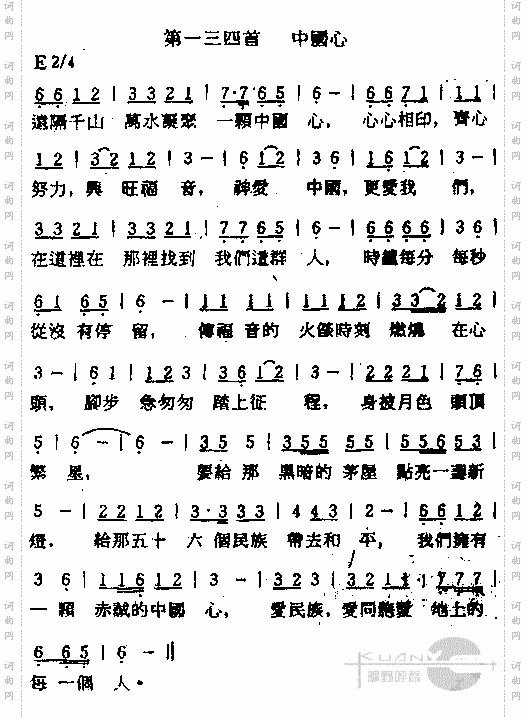 第一三四首 中國心
E 2/4
6 6 1 2 | 3 3 2 1 | 7·7 6 5 | 6 - | 6 6 7 1 | 1 1 1
遠隔千山 萬水凝聚 一顆中國 心， 心心相印， 齊心
1 2 | 3 2 1 2 | 3 - | 6 1 2 | 3 5 | 1 6 1 2 | 3 - |
努力， 興 旺福 音， 神愛 中國， 更愛我 們，
3 3 2 1 | 3 3 2 1 | 7 7 6 5 | 6 - | 6 6 6 6 | 3 6 |
在這裡在 那裡找到 我們這群 人， 時鐘每分 每秒
6 1 6 5 | 6 - | 1 1 1 1 | 1 1 1 1 | 3 3 3 2 | 2 1 2 |
從沒 有停 留， 傳福 音的 火燄時刻 燃燒 在心
3 - | 6 1 | 1 2 3 | 1 2 3 | 3 6 1 2 | 3 - | 2 2 2 2 | 7 6 |
頭， 腳步 急匆匆 踏上征 程， 身披月色 頭頂
5 | 6 - | 6 - | 3 5 5 | 3 5 5 5 | 5 5 | 5 5 6 5 3 |
繁 星， 要給 那 黑暗的 茅屋 點亮一盞新
5 - | 2 2 1 2 | 2 2 1 2 | 3·3 3 3 | 1 2 | 6 - | 6 6 1 2 |
燈， 給那五十 六 個民族 帶去和 平， 我們擁有
3 6 | 1 1 6 1 2 | 3 - | 1 2 3 | 3 2 1 2 1 1 | 7 7 7 7 |
一顆 赤誠的中國 心， 愛民族，愛同胞愛 地上的
6 6 6 5 | 6 - ||
每 一個 人。
KUANG
曠野呼聲
词曲网
词曲网
词曲网
词曲网
词曲网
词曲网
词曲网
词曲网
词曲网
词曲网
词曲网
词曲网